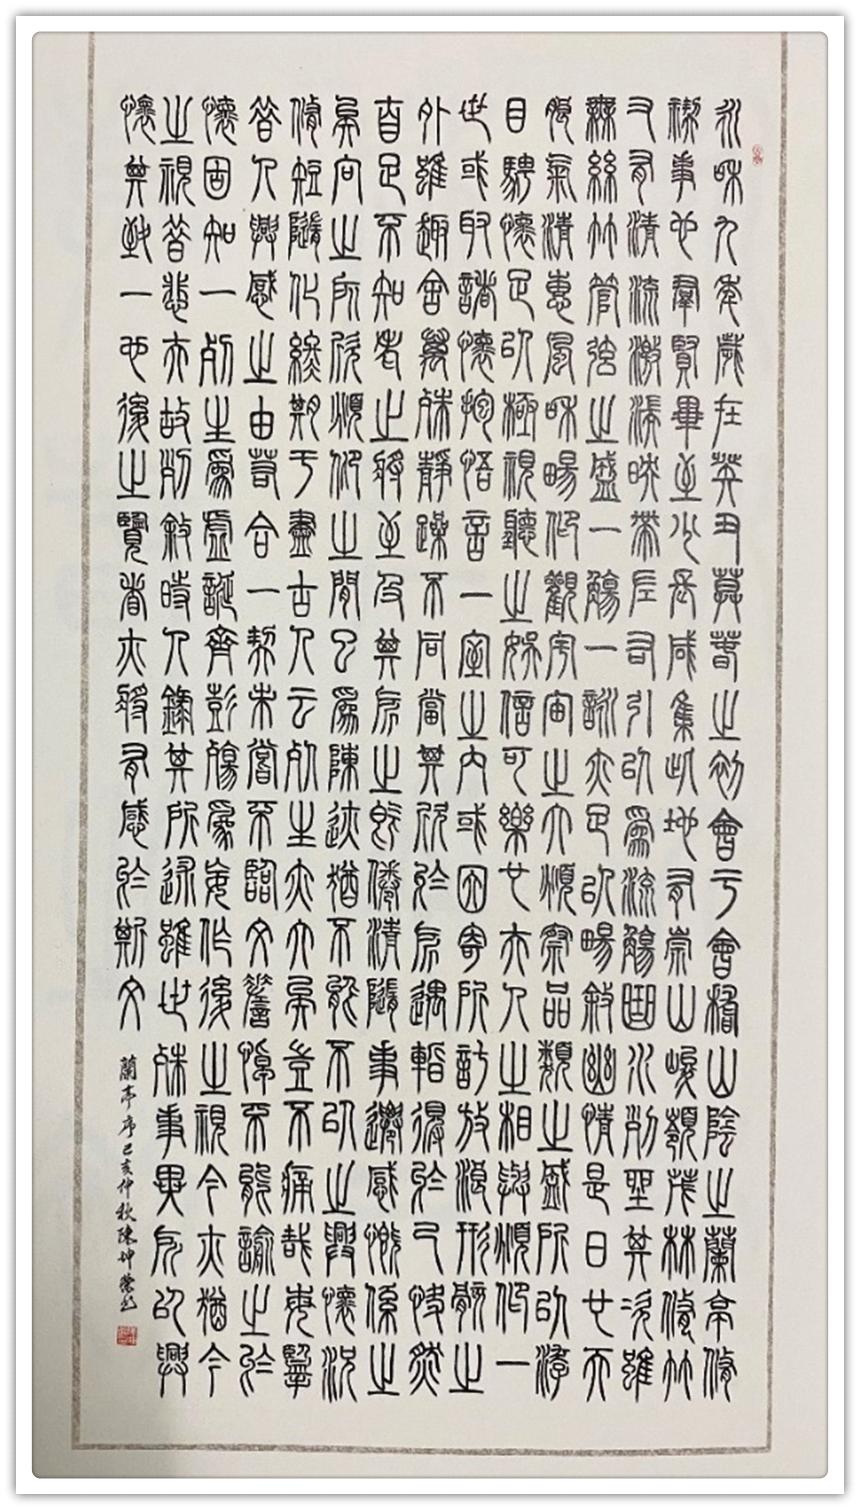 永和九年歲在癸丑莫春之初會于會稽山陰之蘭亭脩
禊事也群賢畢至少長咸集此地有崇山峻嶺茂林脩竹
又有清流激湍映帶左右引以為流觴曲水列坐其次雖
無絲竹管弦之盛一觴一詠亦足以暢敘幽情是日也天
朗氣清惠風和暢仰觀宇宙之大俯察品類之盛所以遊
目騁懷足以極視聽之娛信可樂也夫人之相與俯仰一
世或取諸懷抱悟言一室之內或因寄所託放浪形骸之
外雖趣舍萬殊靜躁不同當其欣於所遇暫得於己快然
自足不知老之將至及其所之既倦情隨事遷感慨係之
矣向之所欣俯仰之間已為陳跡猶不能不以之興懷況
脩短隨化終期于盡古人云死生亦大矣豈不痛哉每擥
昔人興感之由若合一契未嘗不臨文嗟悼不能諭之於
懷固知一死生為虛誕齊彭殤為妄作後之視今亦猶今
之視昔悲夫故列敘時人錄其所述雖世殊事異所以興
懷其致一也後之覽者亦將有感於斯文
蘭亭序己亥仲秋陳坤榮書